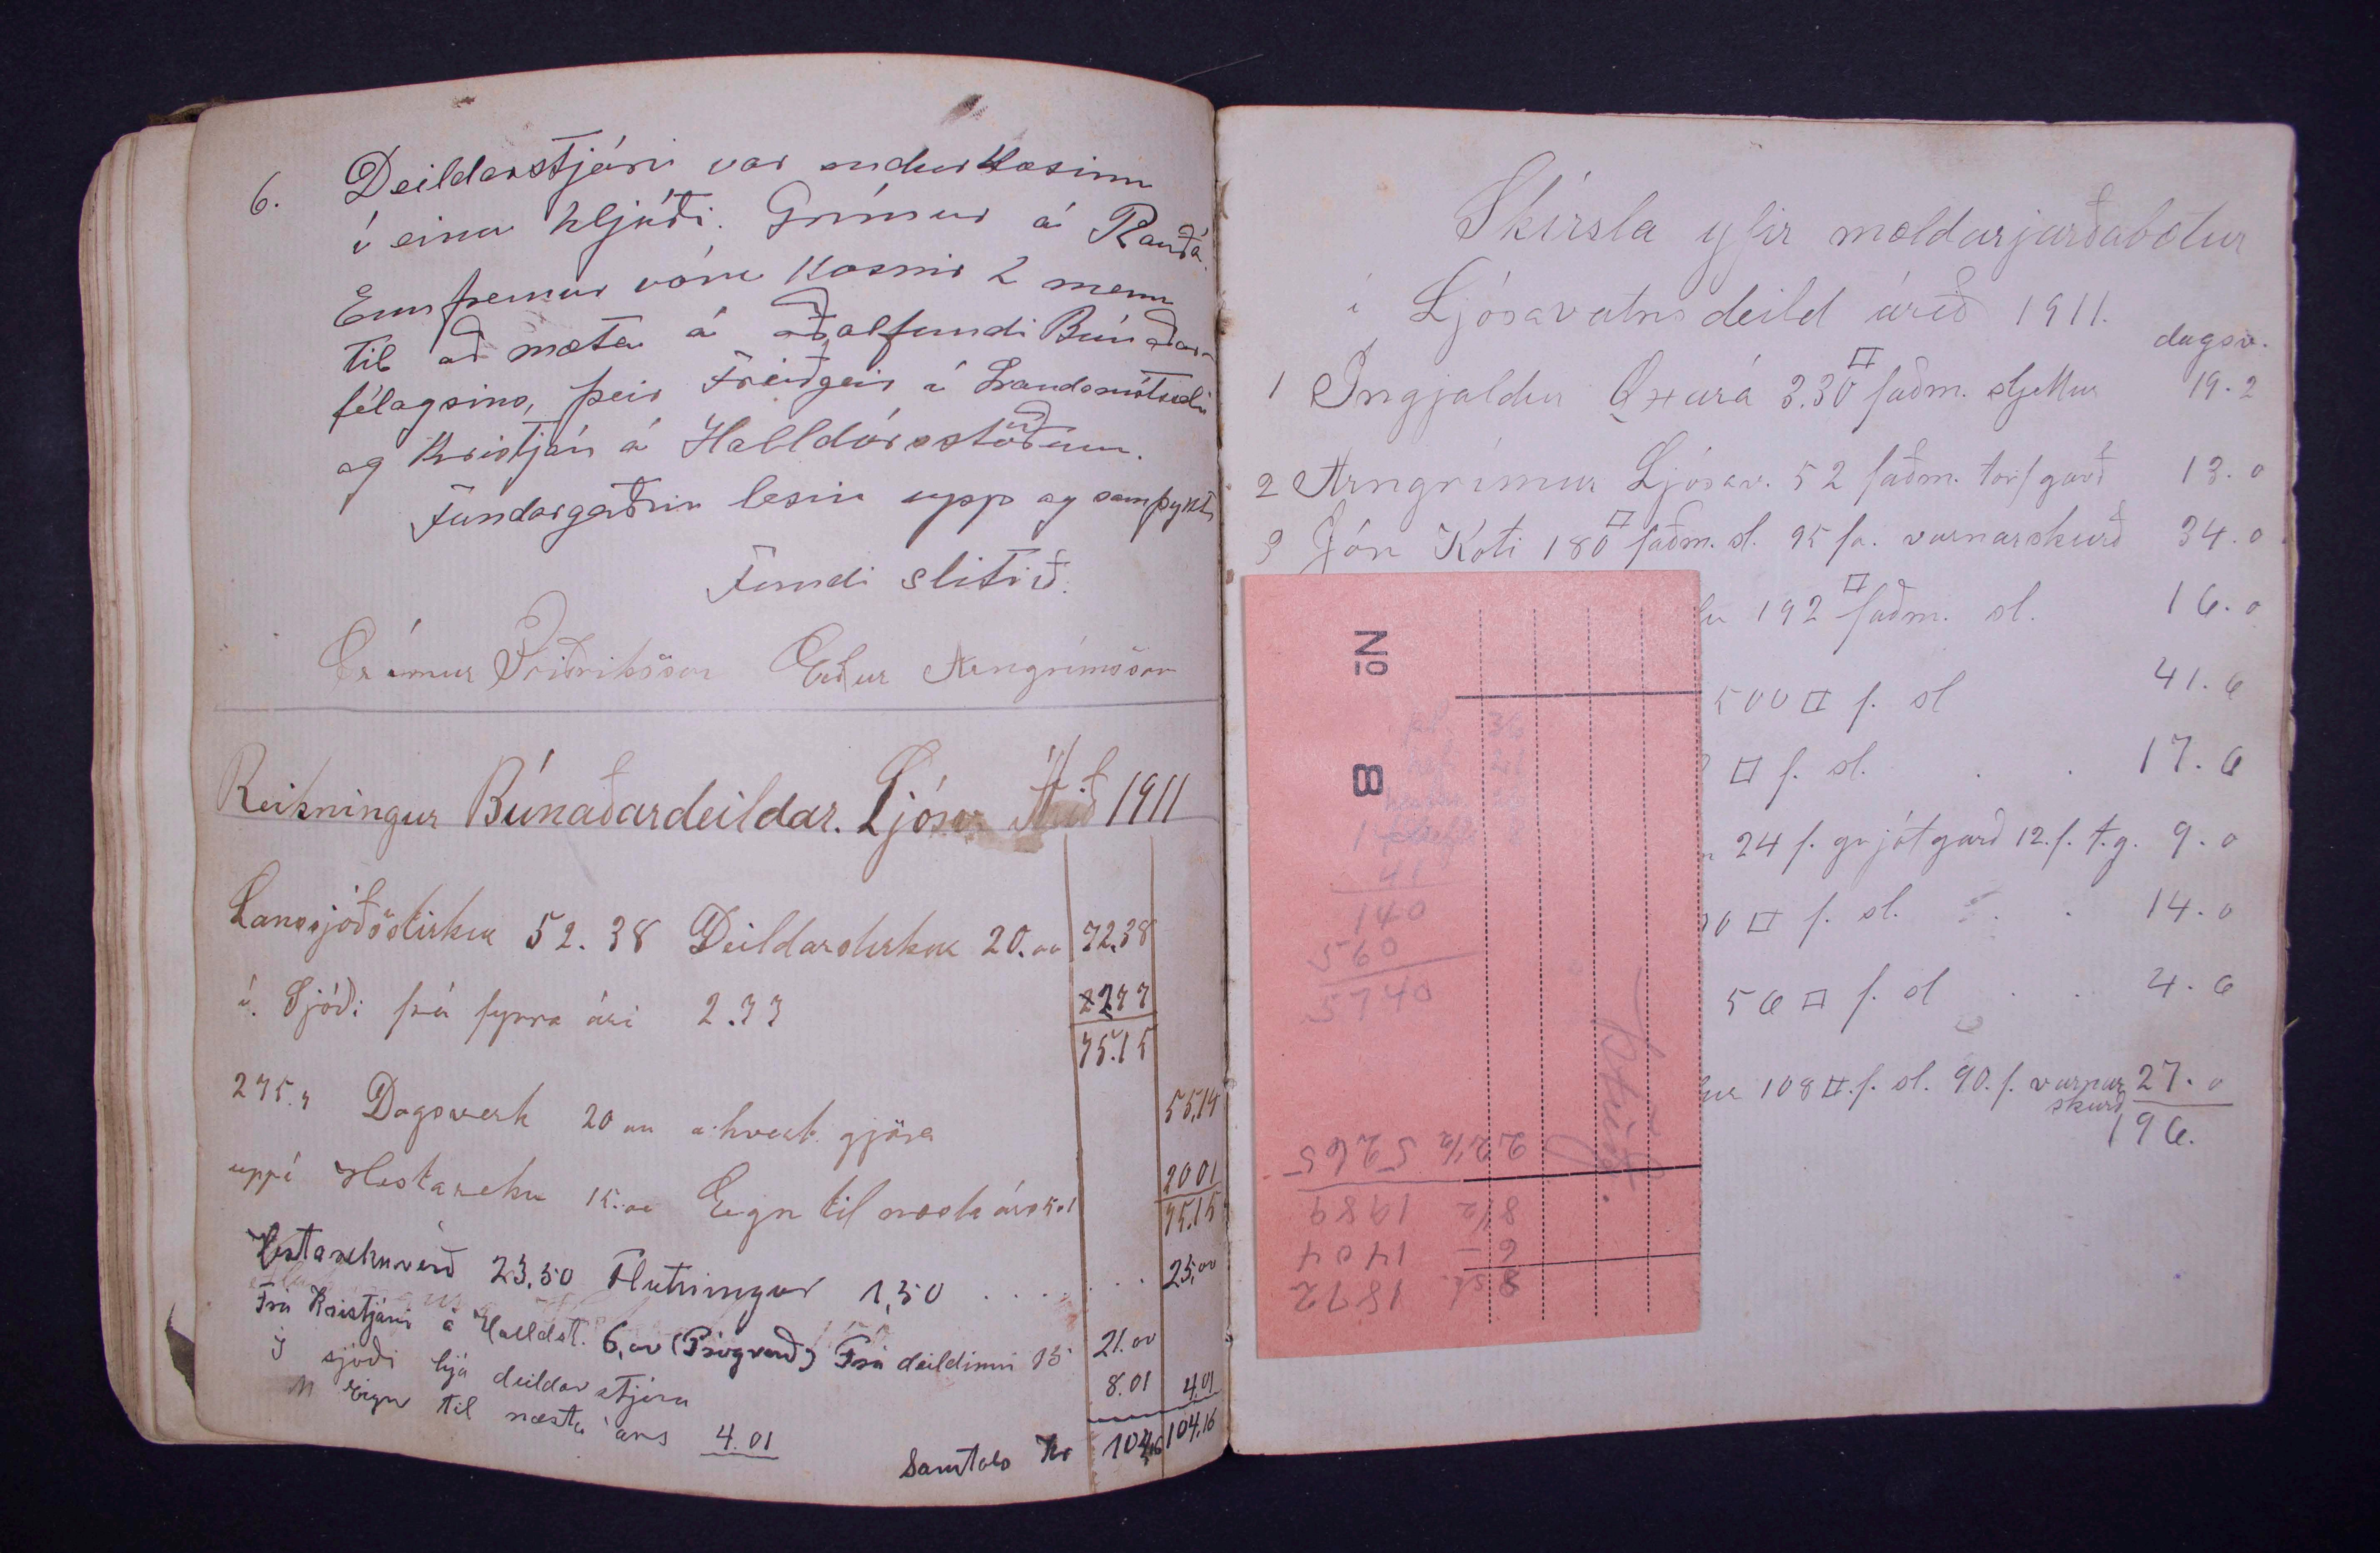 6. Deildarstjóri var endurkosinn
í einu hljóði. Grímur á Rauðá.
Ennfremur vóru kosnir 2 menn
til að mæta á aðalfundi Búnaðar-
félagsins, þeir Friðgeir á Landamótsseli
og Kristján á Halldórsstöðum.
Fundargerðin lesin upp og samþykt
Fundi slitið.
Grímur Friðriksson Eiður Arngrímsson
Reikningur Búnaðardeildar. Ljósav Árið 1911
Lanssjóðsstirkur 52.38 Deildarstirkur 20.oo 72.38
í Sjóði frá fyrra ári 2.77 2.77
75.15
275.7 Dagsverk 20 au a hvert gjöra 55,14
uppí Hestareku 15.oo Eign til næsta árs 5.01 2001
75.15
Hestarekuverð 23,50 Flutningur 1,50 . . . . . . 25,oo
Frá Kristjáni á Halldst. 6,oo Frá deildinni 15 21.oo
Í sjóði hjá deildarstjóra 8.01 4.01
Eign til næsta árs 4.01
Samtals Kr 104,16 104.16
Skírsla yfir moldarjarðabætur
í Ljósavatnsdeild árið 1911.
dagsv.
1 Ingjaldur Öxará 330 □ faðm. sljettur 19.2
2 Arngrímur Ljósav. 52 faðm. torfgarð 13.0
3 Jón Koti 180 □ faðm. sl. 95 fa. varnarskurð 34.0
192 □ faðm. sl. 16.0
500 □ f. sl 41.6
□ f. sl. . . 17.6
24 f. grjótgarð 12. f. t.g. 9.0
□ f. sl. . . 14.0
56 □ f. sl . . 4.6
108 □ f. sl. 90. f. varnar 27.0
skurð
196.
No 8
41
140
560
5740
2 2 1/2 5265
8 1/2 1989
6 - 1404
8 st. 1872